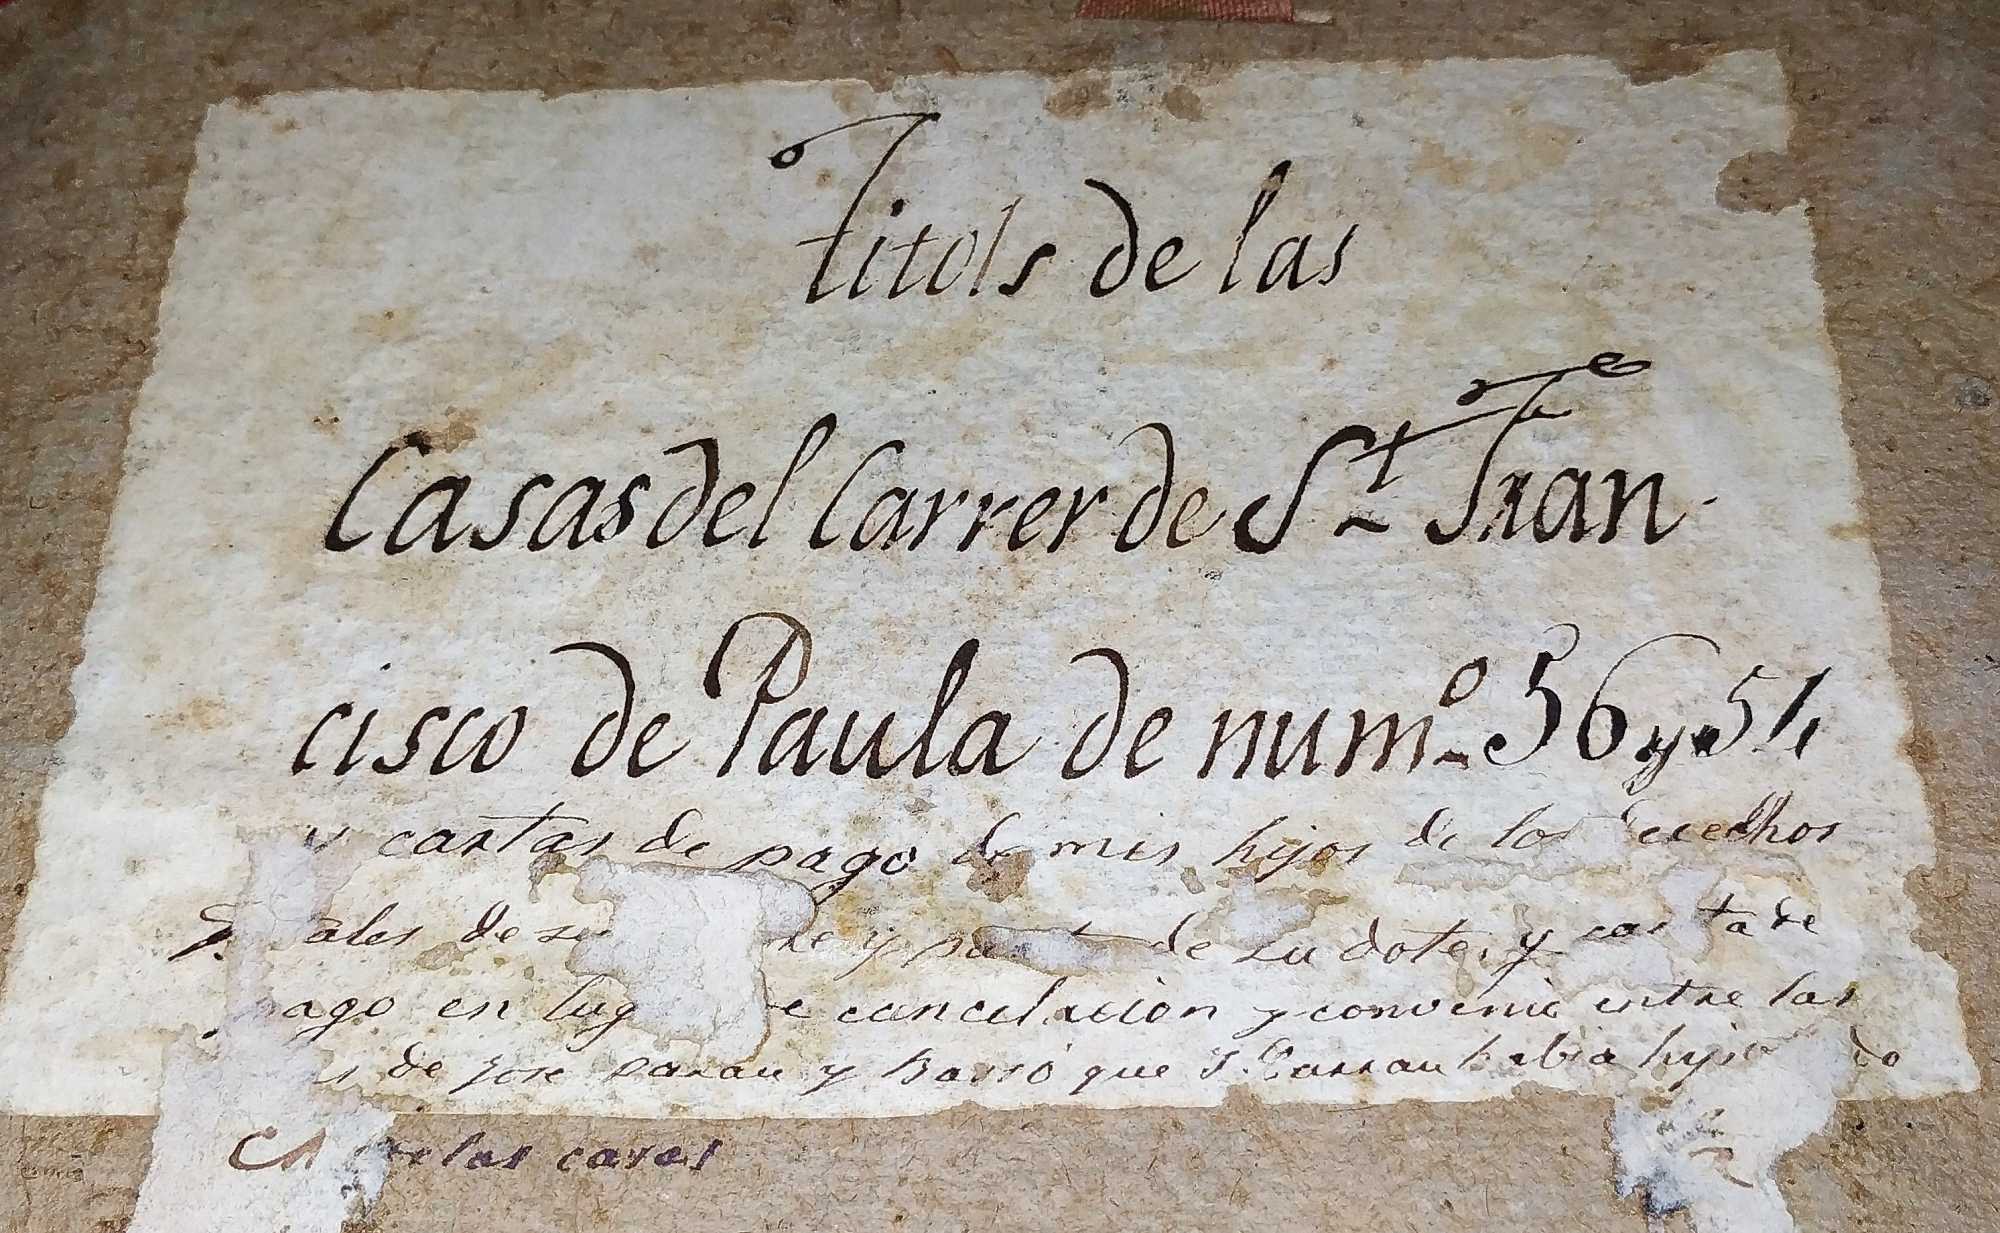 Titols de las
Casas del Carrer de St Fran-
cisco de Paula de numo 56 y 54
y cartas de pago de mis hijos de los
ales de su y de su dote, y carta de
pago en cancelacion y convenio entre las
de Jose Parrau y que J. Parrau habia
las casas